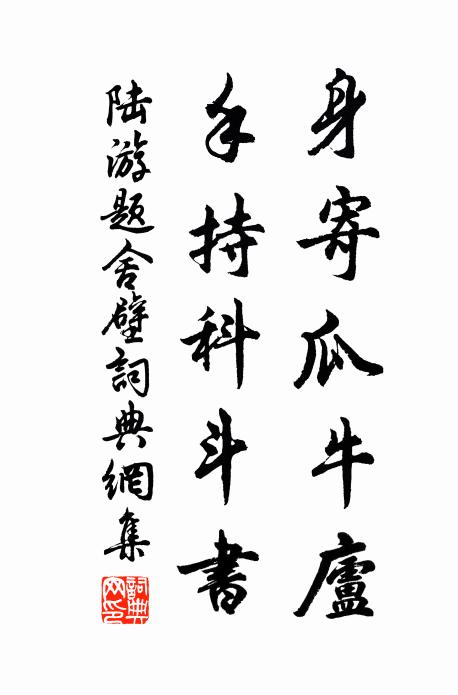 身寄瓜牛廬
手持科斗書
陸游題舍壁詞典網集
詞典網印